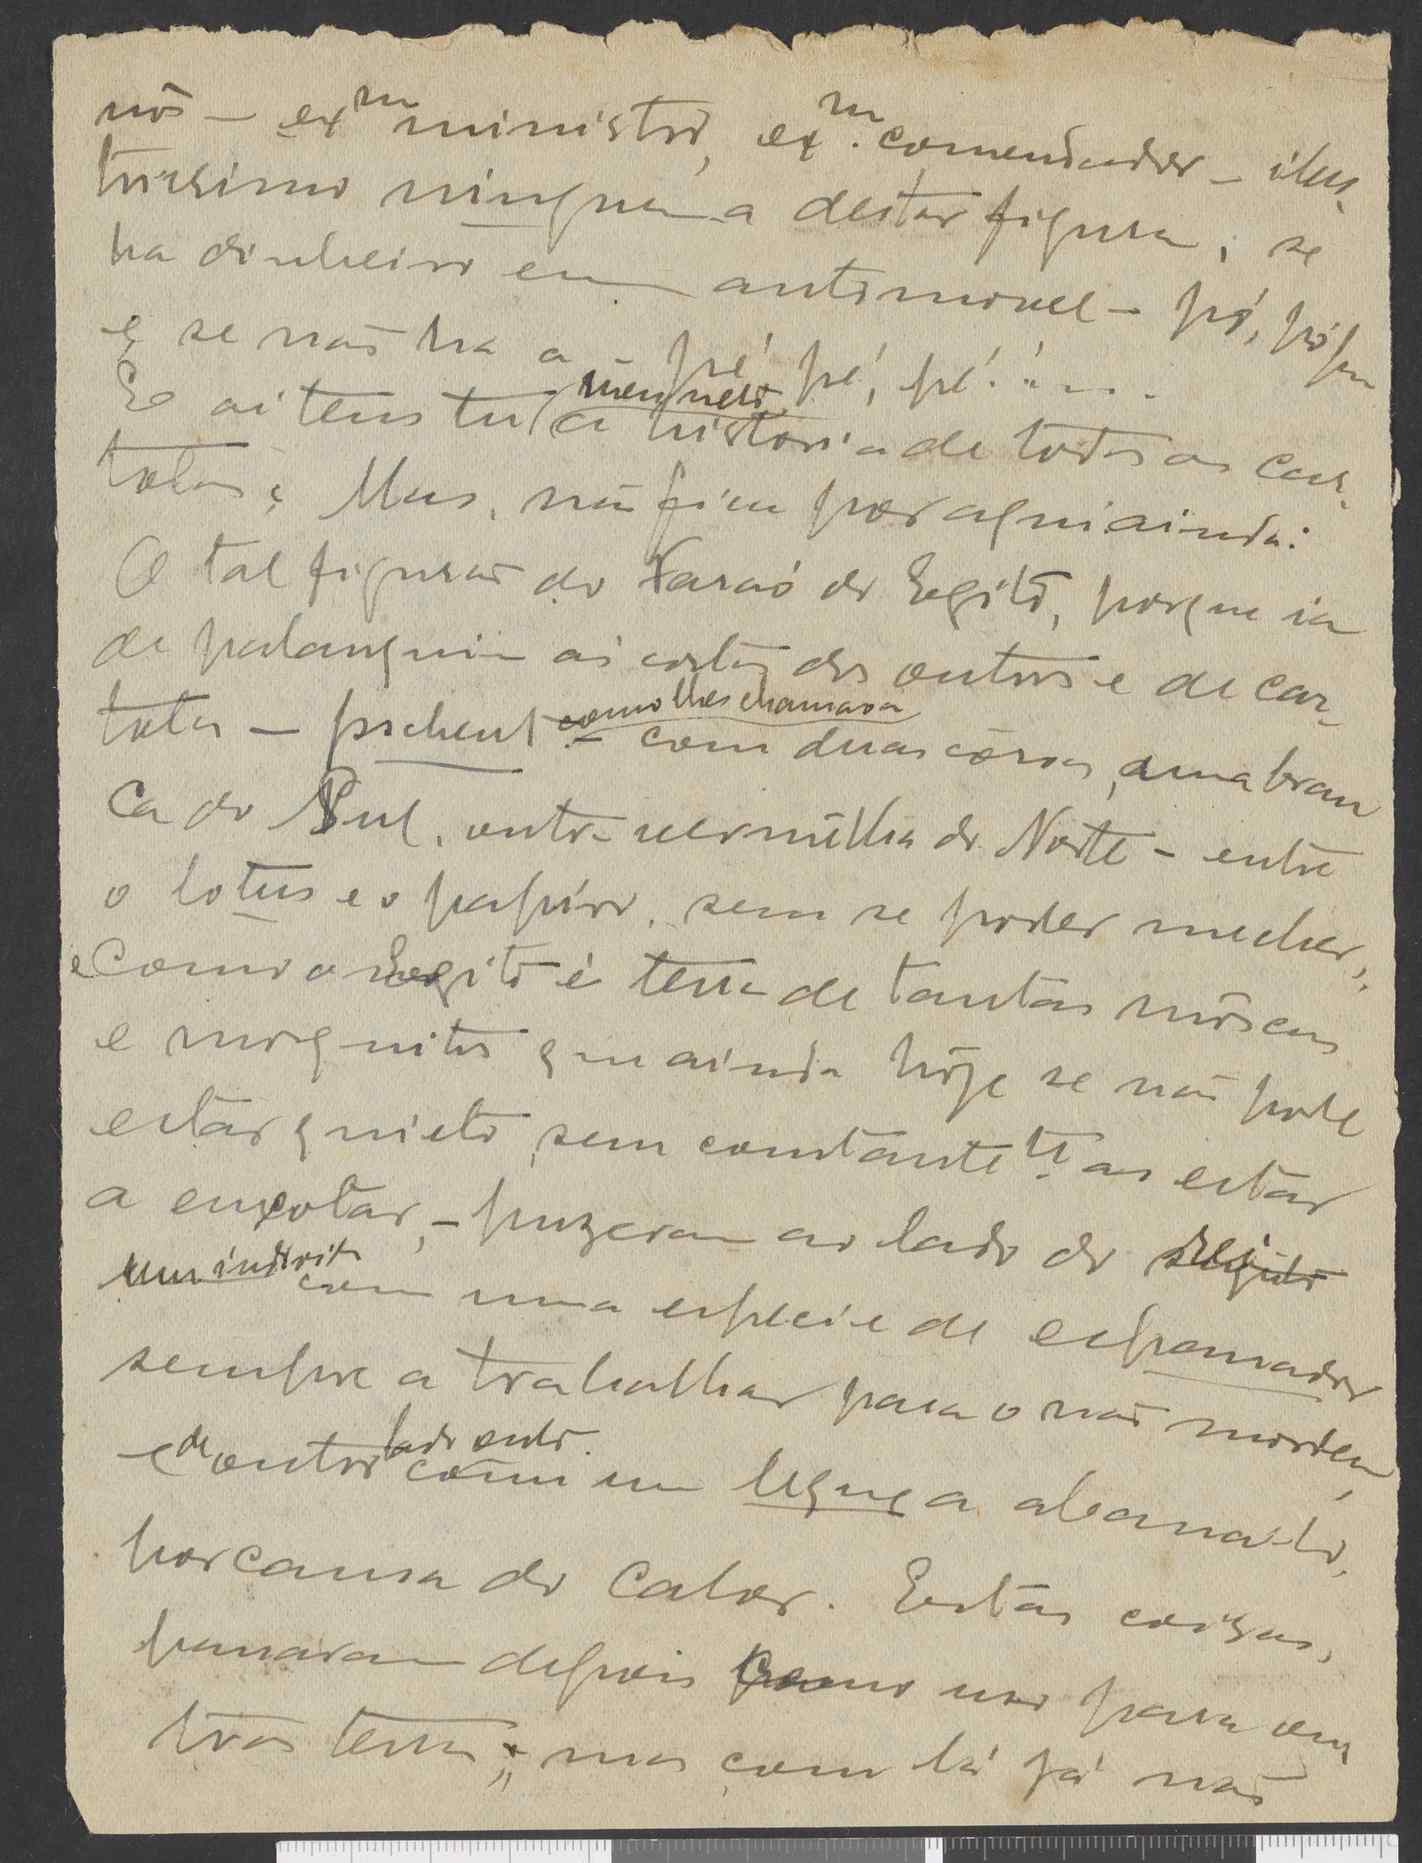 nós – exᵐ ministro, exᵐ. comendador – ilus-
trissimo ninguem a deitar figura, se
ha dinheiro em automovel – pó, pó, 
e se não ha a – pé, pé, pé! ....
E aí tens tu (meu neto) a historia de todas as car-
tolas; Mas, não fica por aqui ainda:
O tal figurão do Faraó do Egito, porque ia
de palanquim ás costas dos outros e de car-
tola – pschent – como lhes chamava – com duas côroas, uma bran
ca do Sul, outra vermêlha do Norte – entre
o lotus e o papiro, sem se poder mecher,
e como o Egito é terra de tantas môscas
e mosquitos que ainda hôje se não pode
estar quieto, sem constantete as estar
a enxotar, – puzeram ao lado do sugeito
um individuo com uma especie de espanador
sempre a trabalhar para o não morderem,
e de outro lado outro com um leque a abana-lo,
por causa do calor. Estas coisas,
passaram depois como uso para ou
tras terras; mas como lá já não